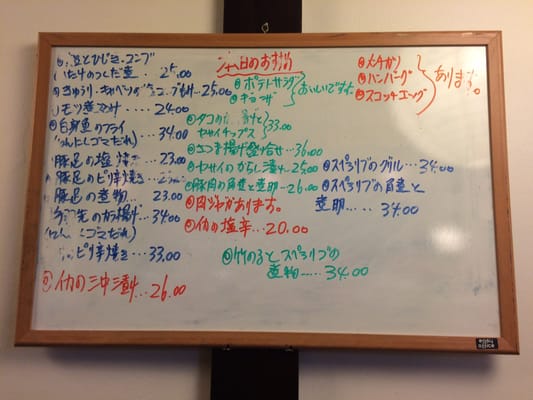 本日のおすすめ
豆とひじき・コンブ
いたけのつくだ煮・ 25.00
きゅうり・キャベツの 25.00
モツ煮 24.00
白身魚のフライ 34.00
にんにくゴマだれ)
豚足の塩焼き・・ 23.00
豚足のピリ辛焼き
豚足の煮物・・・ 23.00
先のから揚げ・・ 34.00
にんにくゴマだれ)
ピリ辛焼き・・・ 33.00
イカの沖漬け・・・ 26.00
ポテトサラダ
ギョーザ
おいしいですよ
タコの
ヤサイチップス 33.00
さつま揚げ盛り合せ・・・ 36.00
ヤサイのからし漬け・・ 25.00
豚肉の角煮と煮卵・・ 26.00
肉じゃがあります。
イカの塩辛・・・ 20.00
竹の子とスペアリブの
煮物・・・・・ 34.00
メンチカツ
ハンバーグ
スコッチエッグ
あります。
スペアリブのグリル・・・ 34.00
スペアリブの角煮と
煮卵・・・・ 34.00
easy office